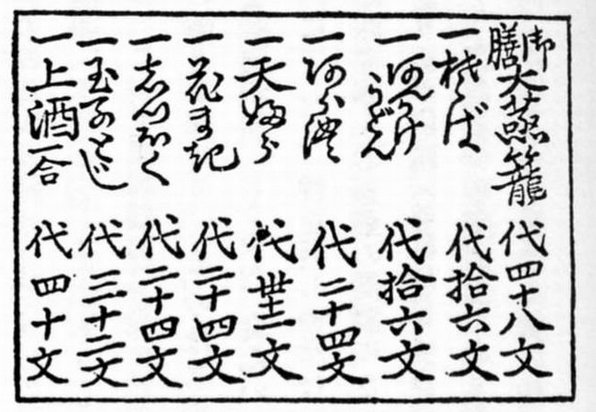 御膳大蒸籠 代四十八文
一そば 代拾六文
一あんかけうどん 代拾六文
一あられ 代二十四文
一天婦ら 代丗二文
一花まき 代二十四文
一しつぽく 代二十四文
一玉子とじ 代三十二文
一上酒一合 代四十文